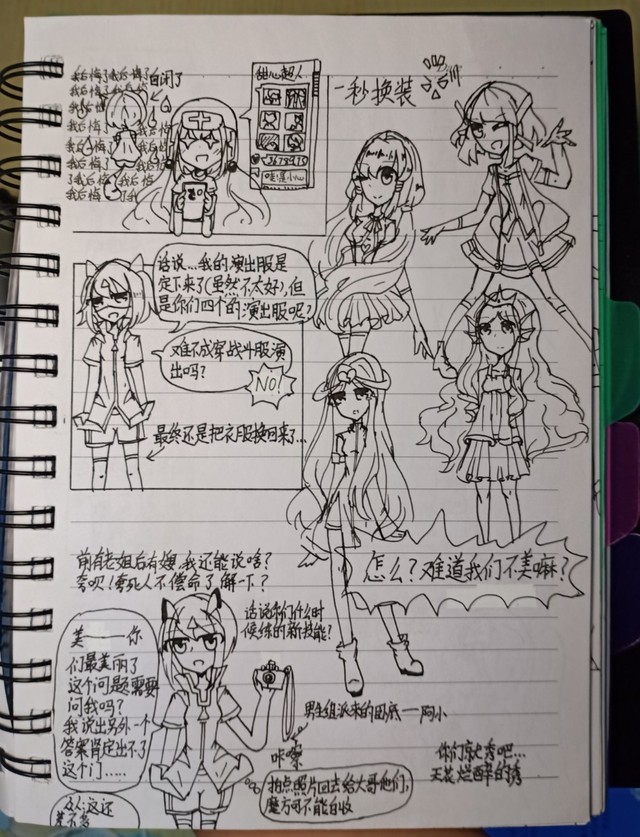 我后悔了我后悔了
自闭了
甜心超人
3678973
一秒换装
话说…我的演出服是
定下来了(虽然不太好),但
是你们四个的演出服呢?
难不成穿战斗服演
出吗?
NO!
最终还是把衣服换回来了…
怎么?难道我们不美嘛?
前有老姐后有嫂,我还能说啥?
夸呗!夸死人不偿命了解一下?
话说我们什么时
候练的新技能?
美——你
们最美丽了
这个问题需要
问我吗?
我说出另外一个
答案肯定出不了
这个门……
男生组派来的卧底——阿小
咔嚓
拍点照片回去给大哥他们,
魔方可不能白收
你们就秀吧…
天花烂醉的锈
这还
差不多